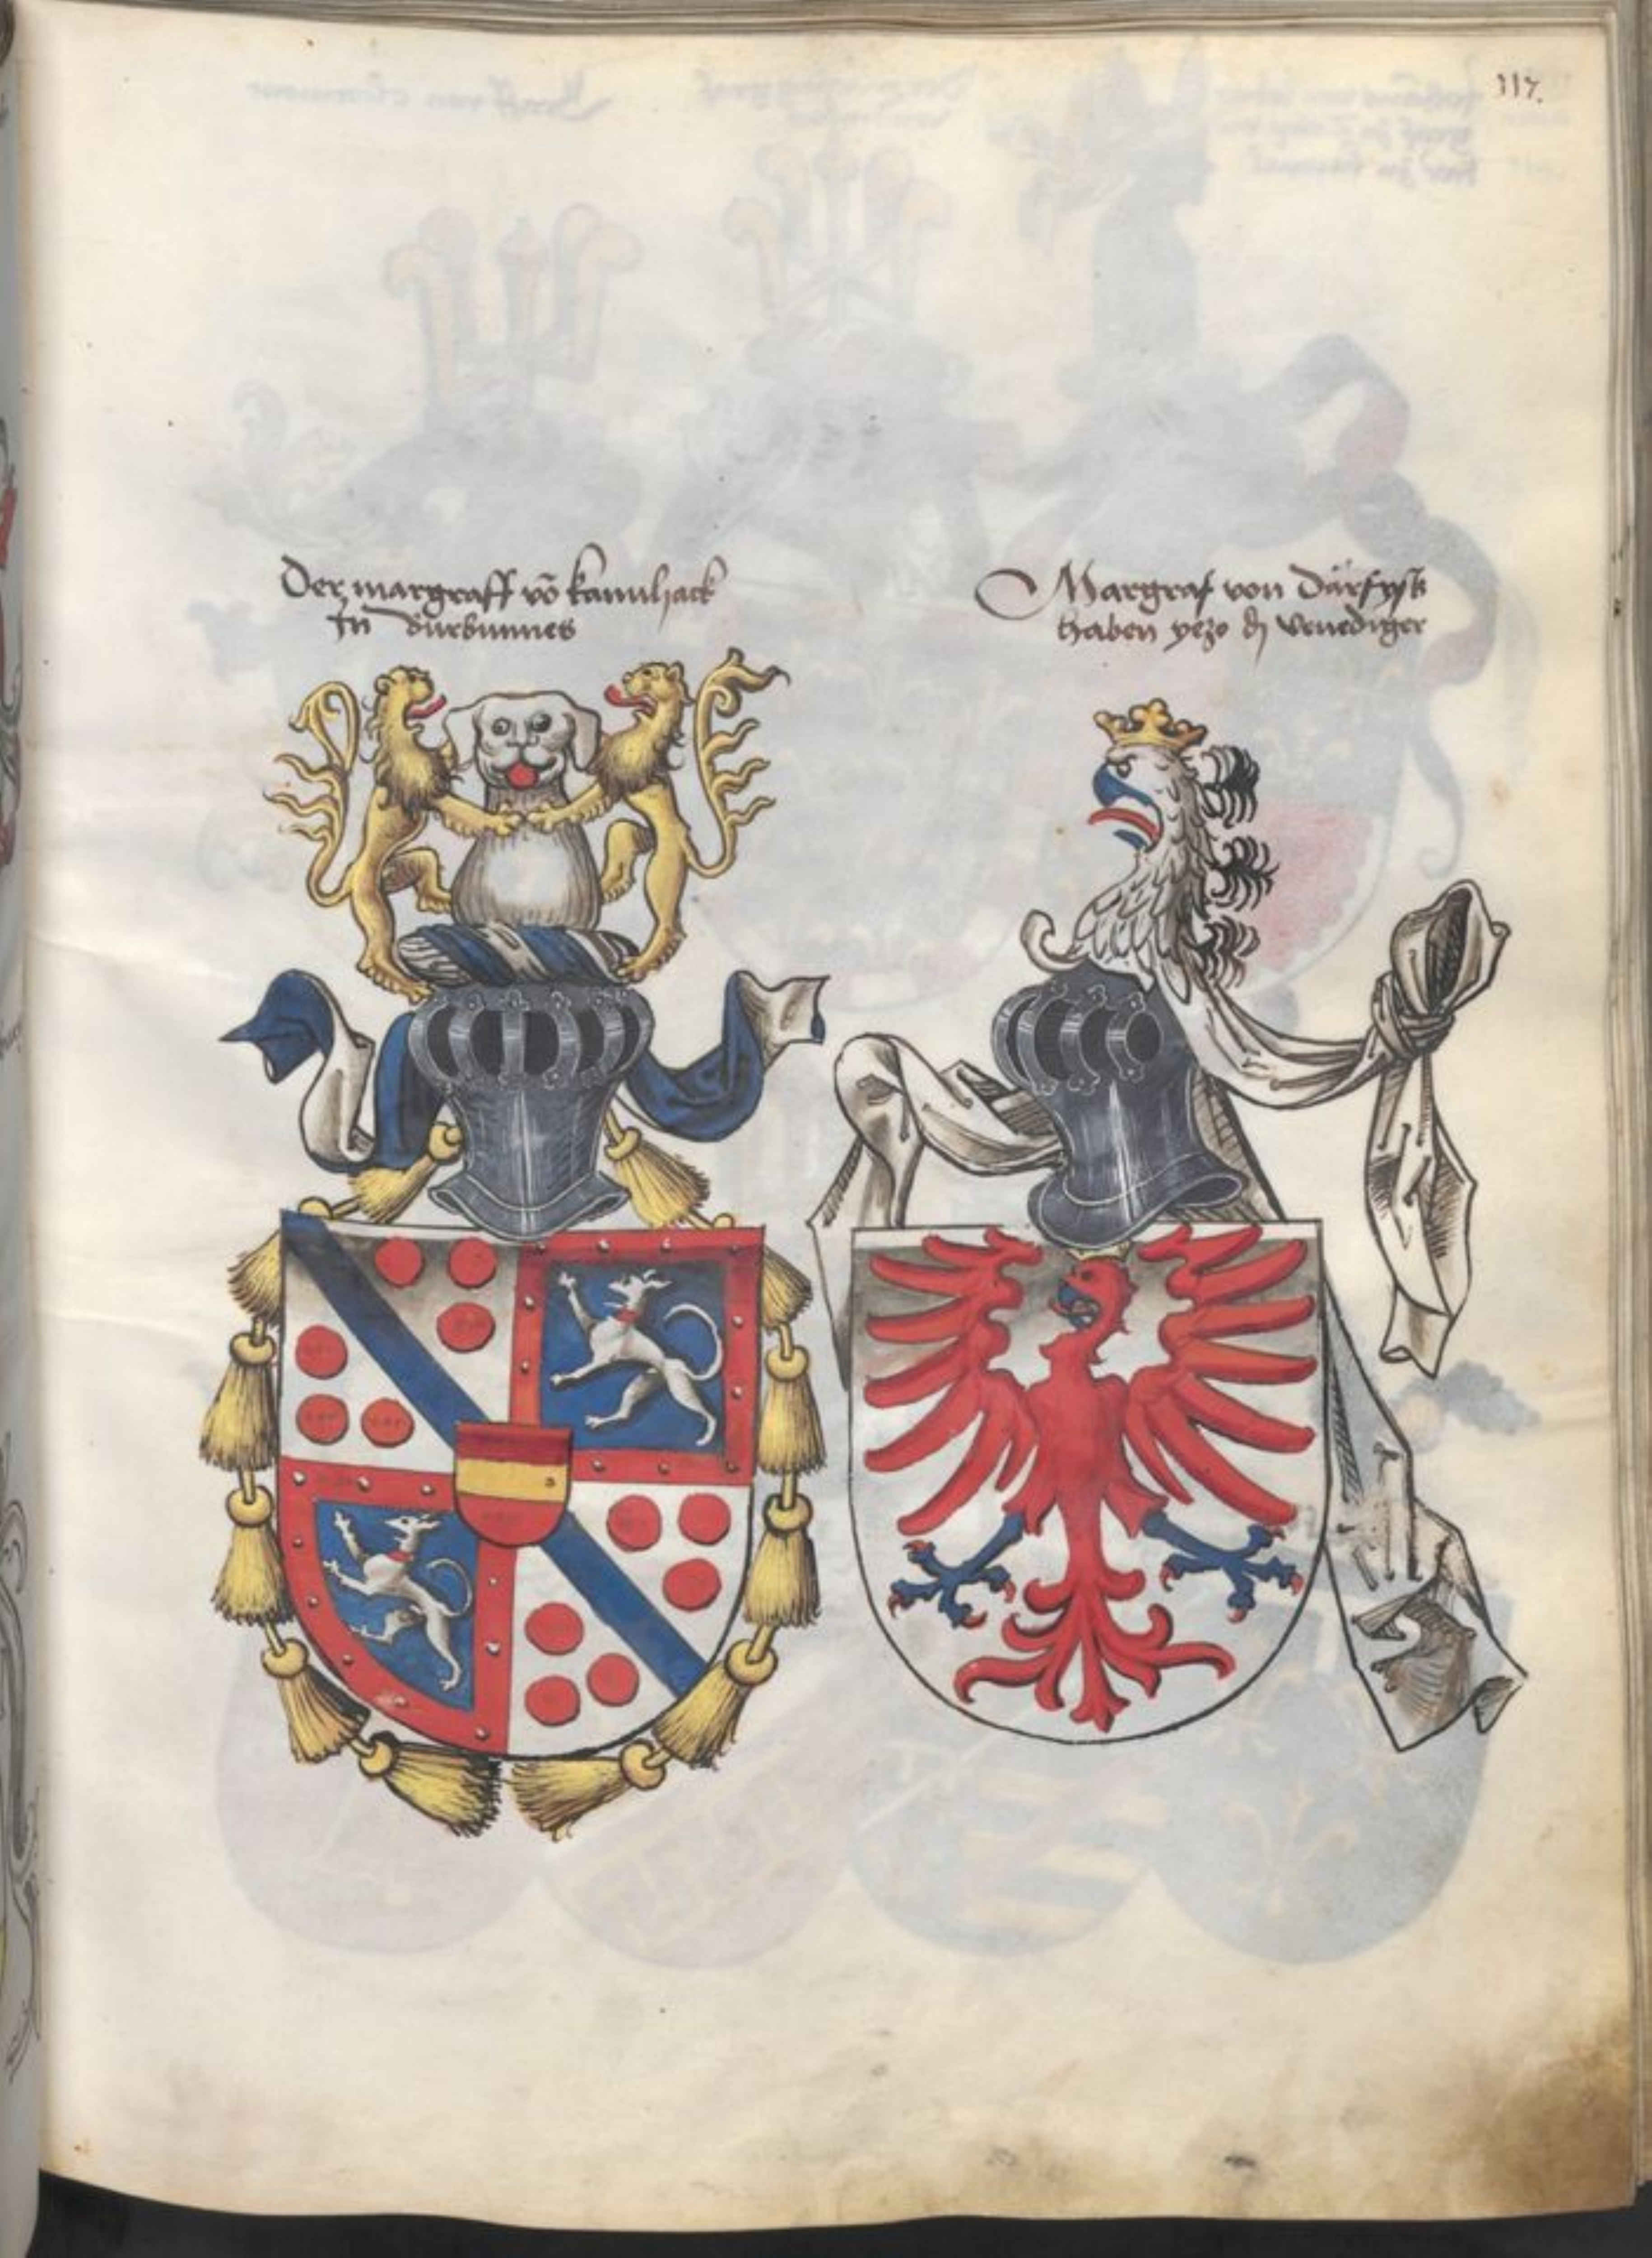 117.
Der margraff vō kamilhack
In dürbumnes
Margraf von Därfÿsß
haben yezo dÿ Venediger